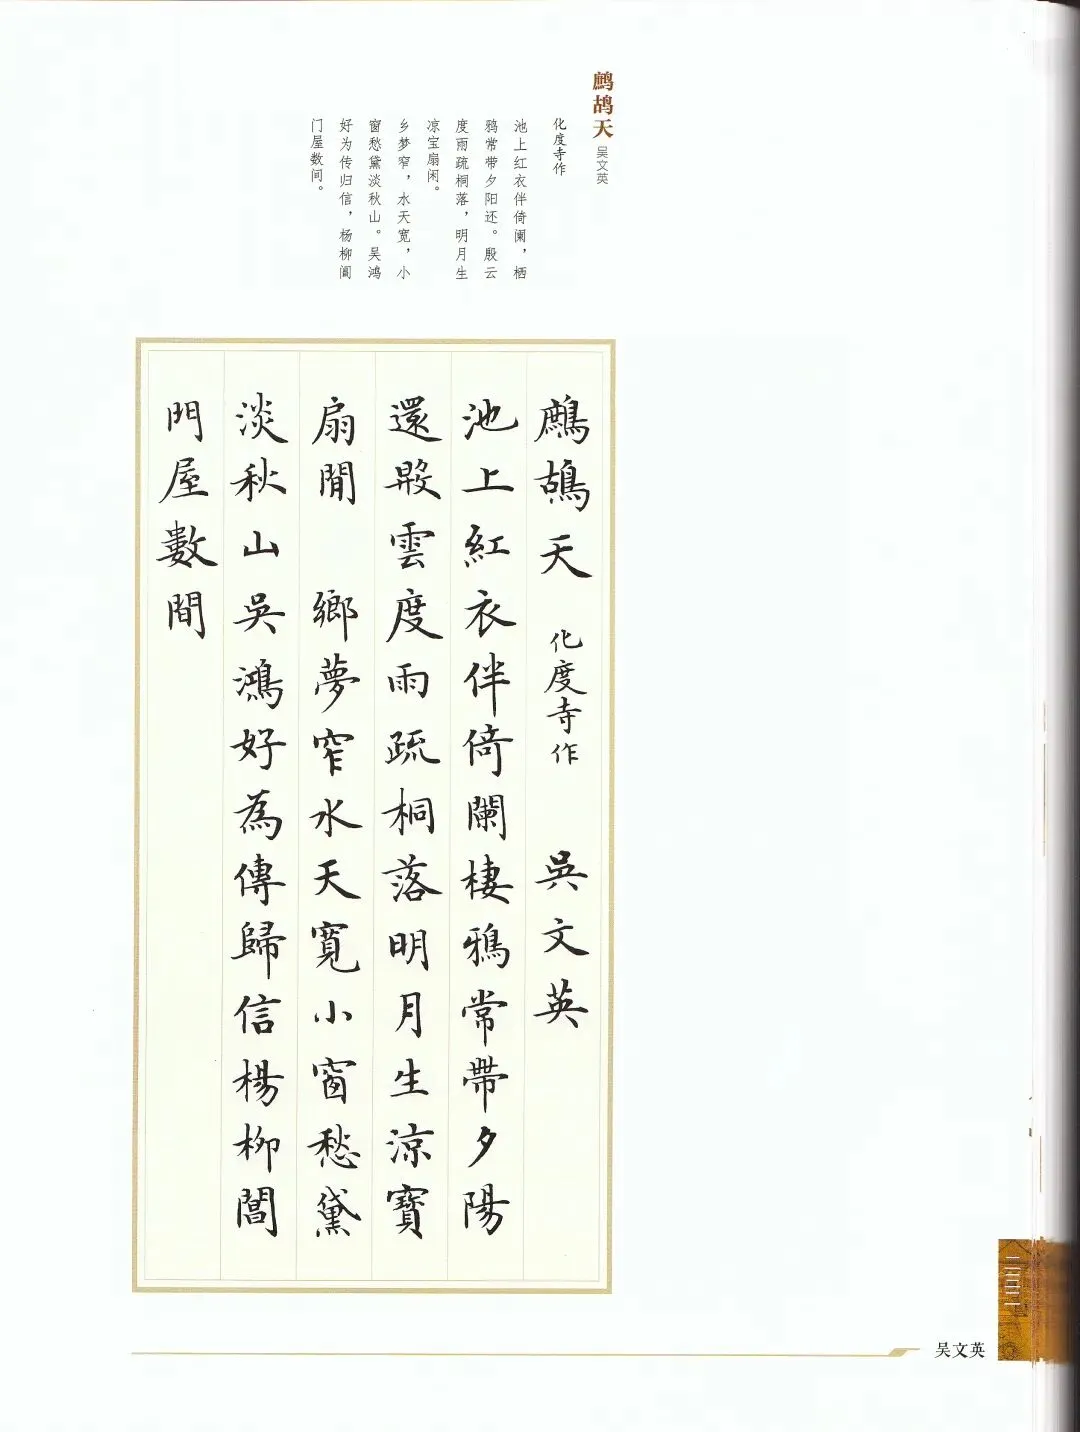 鹧鸪天 吴文英
化度寺作
池上红衣伴倚阑，栖
鸦常带夕阳还。殷云
度雨疏桐落，明月生
凉宝扇闲。
乡梦窄，水天宽，小
窗愁黛淡秋山。吴鸿
好为传归信，杨柳阊
门屋数间。
鷓鴣天 化度寺作 吳文英
池上紅衣伴倚闌棲鴉常帶夕陽
還殷雲度雨疏桐落明月生涼寶
扇閒 鄉夢窄水天寬小窗愁黛
淡秋山吳鴻好為傳歸信楊柳閶
門屋數間
吴文英